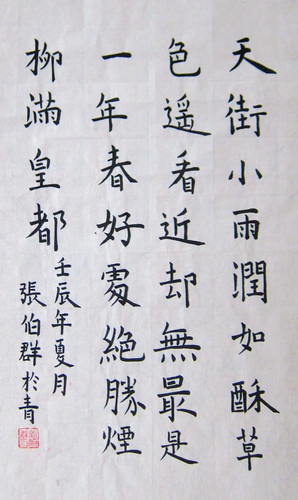 天街小雨潤如酥草
色遥看近却無最是
一年春好處絕勝煙
柳滿皇都
壬辰年夏月
張伯群於青